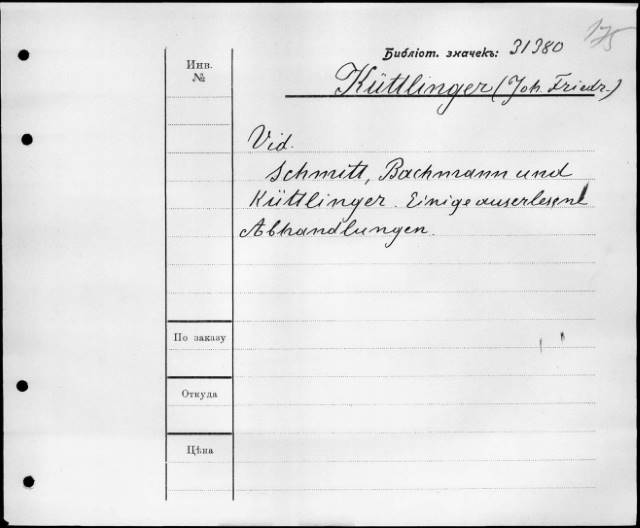 175
Библіот. значекъ: 31380
Küttlinger (Joh. Friedr.)
Инв.
№
Vid.
Schmitt, Bachmann und
Küttlinger. Einige auserlesene
Abhandlungen.
По заказу
Откуда
Цѣна